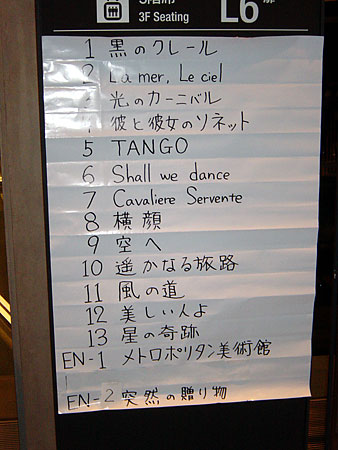 3F Seating
L6
1 黒のクレール
2 La mer, Le ciel
3 光のカーニバル
4 彼と彼女のソネット
5 TANGO
6 Shall we dance
7 Cavaliere Servente
8 横顔
9 空へ
10 遥かなる旅路
11 風の道
12 美しい人よ
13 星の奇跡
EN-1 メトロポリタン美術館
EN-2 突然の贈り物